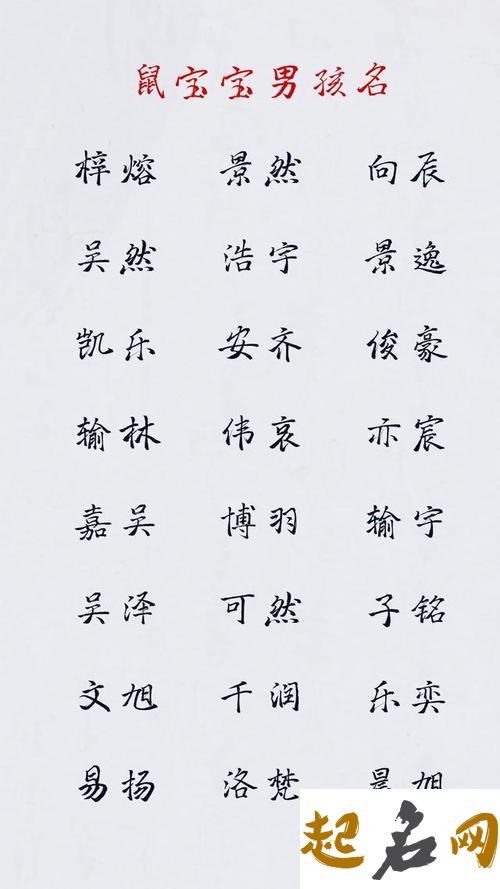 鼠宝宝男孩名
梓熔 景然 向辰
吴然 浩宇 景逸
凯乐 安齐 俊豪
输林 伟哀 亦宸
嘉吴 博羽 输宇
吴泽 可然 子铭
文旭 千润 乐奕
易扬 洛梵
起名网